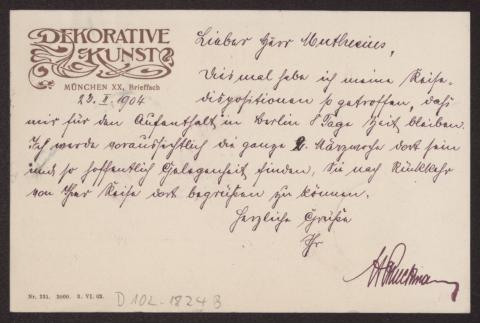 DEKORATIVE
KUNST
MÜNCHEN XX, Brieffach
23. II. 1904
Lieber Herr Muthesius,
Diesmal habe ich meine Reise-
dispositionen so getroffen, daß
mir für den Aufenthalt in Berlin 8 Tage Zeit bleiben.
Ich werde voraussichtlich die ganze 2. Märzwoche dort sein
und so hoffentlich Gelegenheit finden, Sie nach Rückkehr
von Ihrer Reise dort begrüßen zu können.
Herzliche Grüße
Ihr
HBruckmann
Nr. 331. 3000. 3. VI. 03.
D 102-1824 B